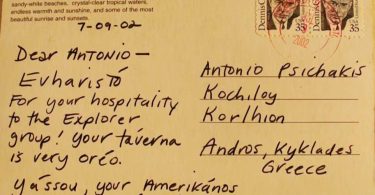 sandy-white beaches, crystal-clear tropical waters,
endless warmth and sunshine, and some of the most
beautiful sunrise and sunsets.
7-09-02
Dear Antonio—
Evharistó
For your hospitality
to the Explorer
group! your taverna
is very oréo.
Yássou, your Amerikános
Antonio Psichakis
Kochiloy
Korlhion
Andros, Kyklades
Greece
35
35
2002